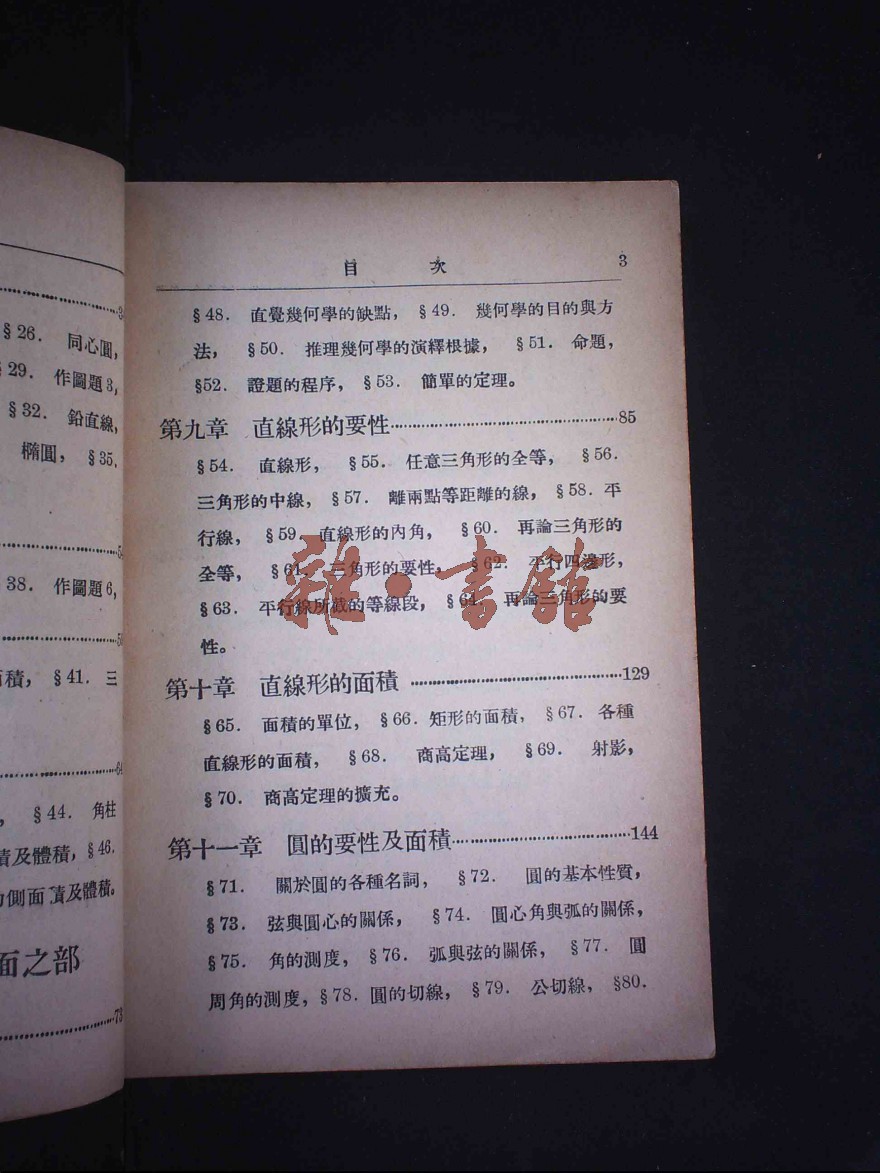 §26. 同心圓,
§29. 作圖題3,
§32. 鉛直線,
橢圓, §35.
38. 作圖題6,
積, §41. 三
, §44. 角柱
積及體積, §46.
側面積及體積。
面之部
73
目 次 3
§48. 直覺幾何學的缺點, §49. 幾何學的目的與方
法, §50. 推理幾何學的演繹根據, §51. 命題,
§52. 證題的程序, §53. 簡單的定理。
第九章 直線形的要性……………………85
§54. 直線形, §55. 任意三角形的全等, §56.
三角形的中線, §57. 離兩點等距離的線, §58. 平
行線, §59. 直線形的內角, §60. 再論三角形的
全等, §61. 三角形的要性, §62. 平行四邊形,
§63. 平行線所截的等線段, §64. 再論三角形的要
性。
雜·書館
第十章 直線形的面積……………………129
§65. 面積的單位, §66. 矩形的面積, §67. 各種
直線形的面積, §68. 商高定理, §69. 射影,
§70. 商高定理的擴充。
第十一章 圓的要性及面積……………………144
§71. 關於圓的各種名詞, §72. 圓的基本性質,
§73. 弦與圓心的關係, §74. 圓心角與弧的關係,
§75. 角的測度, §76. 弧與弦的關係, §77. 圓
周角的測度, §78. 圓的切線, §79. 公切線, §80.